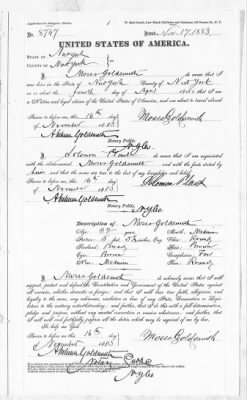 No. 8747
Issued Nov. 17 1883
UNITED STATES OF AMERICA.
STATE OF New York
COUNTY OF New York
I Moses Goldsmith do swear that I
was born in the State of New York County of New York
on or about the fourth day of April
a Native and loyal citizen of the United States of America, and am about to travel abroad
Sworn to before me this 16th day
of November 1883
Moses Goldsmith
Abraham Goldsmith
Notary Public.
I Solomon do swear that I am acquainted
with the above-named Moses Goldsmith and with the facts stated by
him and that the same are true to the best of my knowledge and belief.
Sworn to before me this 16th day
of November 1883
Solomon
Abraham Goldsmith
Notary Public.
Description of Moses Goldsmith
Age: years
Mouth: Medium
Stature: 5 feet inches Eng.
Chin: Round
Hair: Brown
Eyes: Brown
Complexion: Fair
Nose: Medium
Face: Round
I Moses Goldsmith do solemnly swear that I will
support, protect and defend the Constitution and Government of the United States against
all enemies, whether domestic or foreign; and that I will bear true faith, allegiance and
loyalty to the same, any ordinance, resolution or law of any State, Convention or Legis-
lature to the contrary notwithstanding; and further, that I do this with a full determination,
pledge and purpose, without any mental reservation or evasion whatsoever; and further, that
I will well and faithfully perform all the duties which may be required of me by law.
So help me God.
Sworn to before me this 16th day
of November 1883
Moses Goldsmith
Abraham Goldsmith
Notary Public